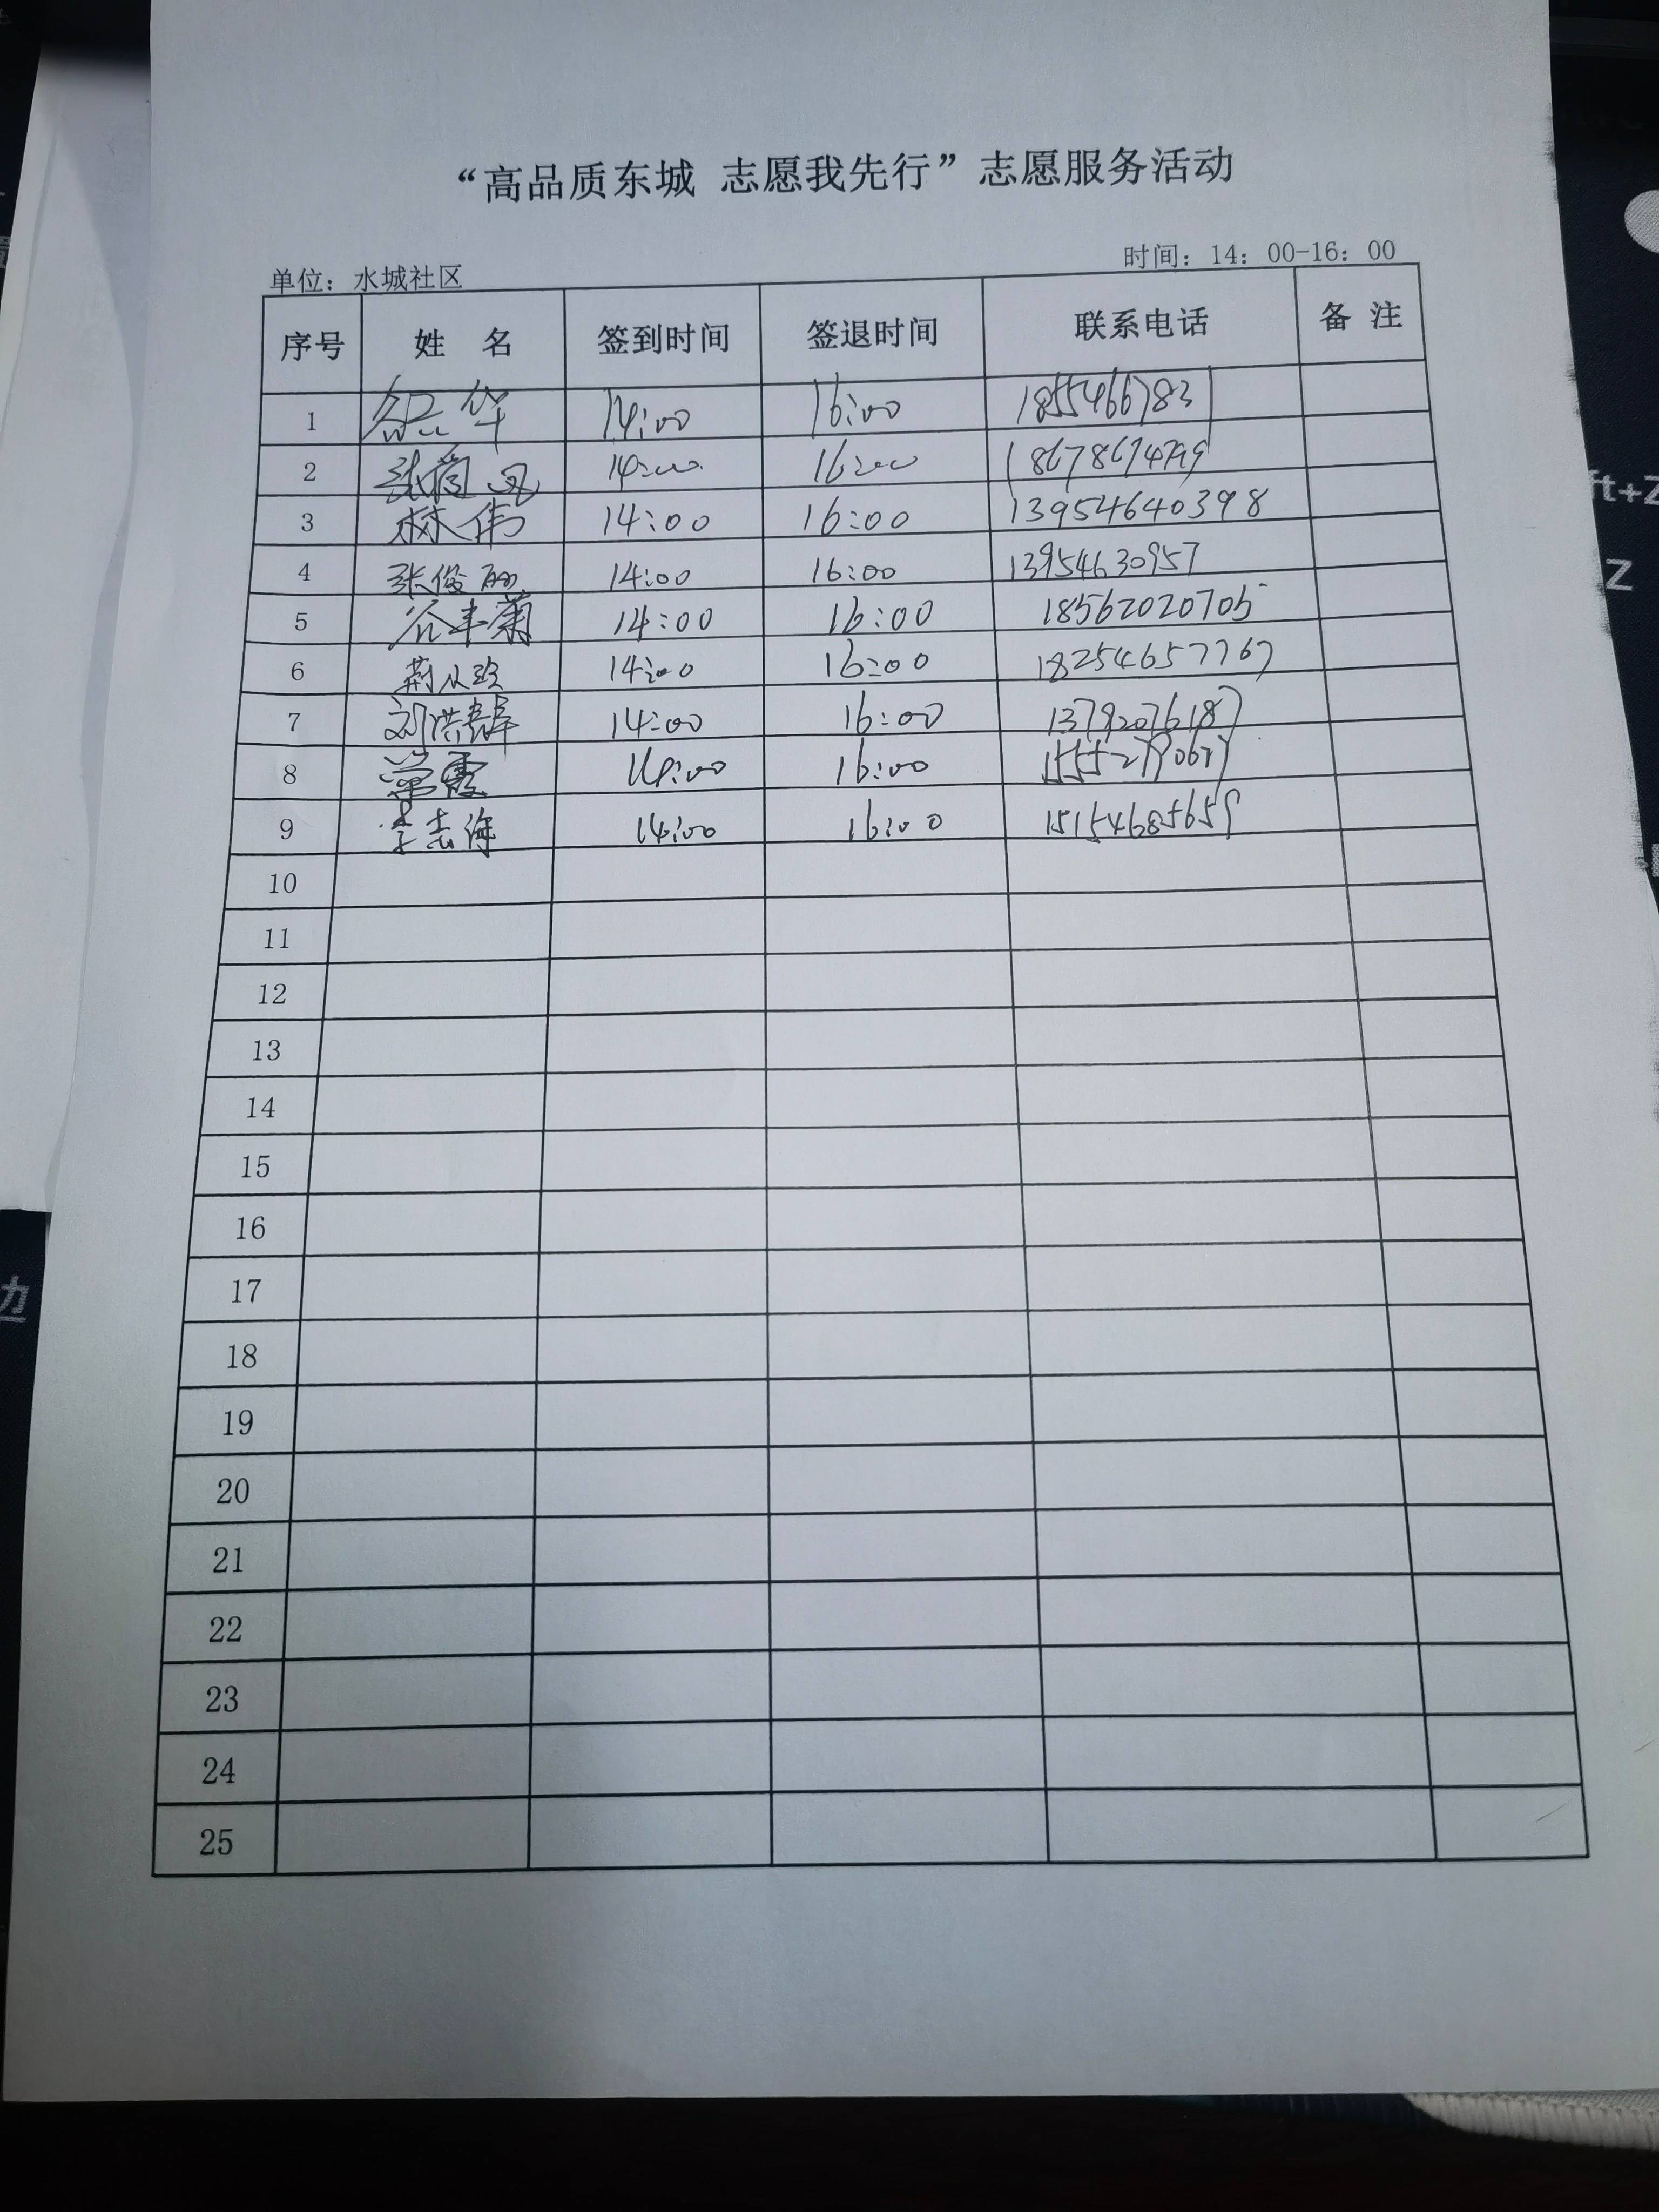 “高品质东城 志愿我先行”志愿服务活动
单位：水城社区 时间：14：00-16：00
序号 姓 名 签到时间 签退时间 联系电话 备 注
1 14:00 16:00 18554667831
2 14:00 16:00 18678674799
3 林伟 14:00 16:00 13954640398
4 张俊丽 14:00 16:00 13954630957
5 谷丰菊 14:00 16:00 18562020705
6 14:00 16:00 18254657767
7 14:00 16:00 13792076187
8 14:00 16:00
9 李志海 14:00 16:00 15154685659
10
11
12
13
14
15
16
17
18
19
20
21
22
23
24
25